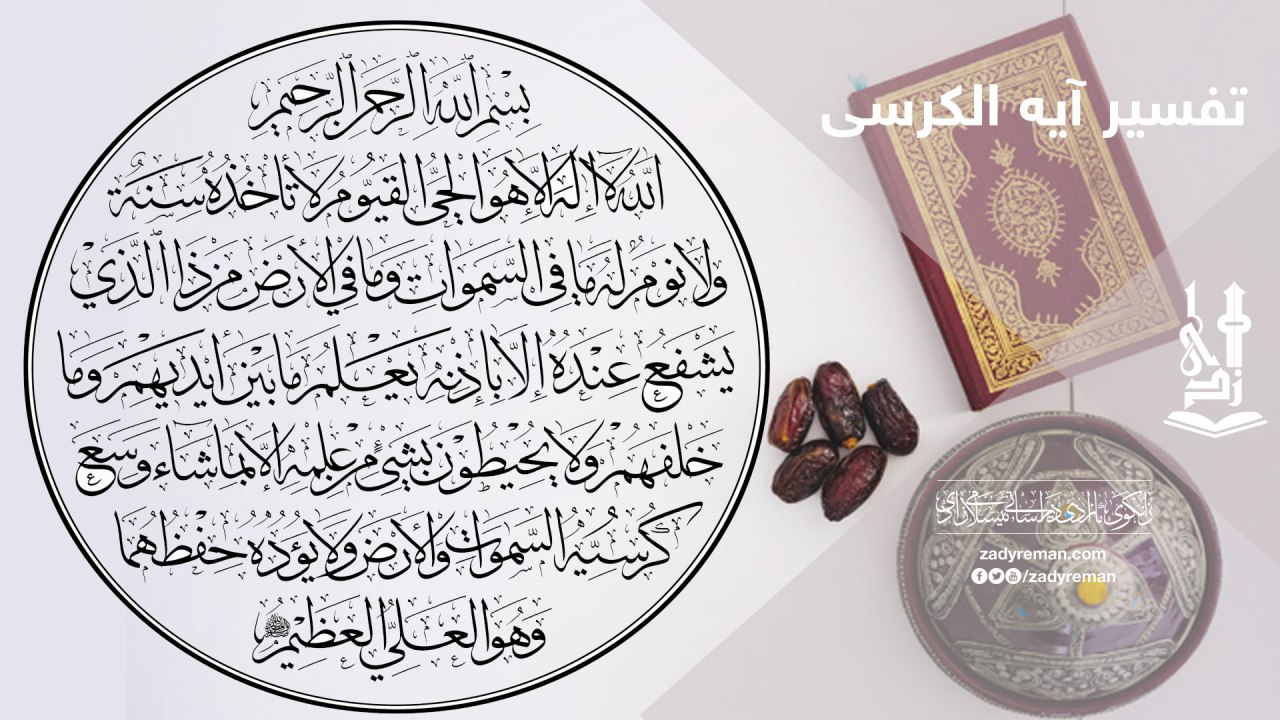 بِسْمِ اللهِ الرَّحْمٰنِ الرَّحِيمِ
اللهُ لَا إِلٰهَ إِلَّا هُوَ الْحَيُّ الْقَيُّومُ لَا تَأْخُذُهُ سِنَةٌ
وَلَا نَوْمٌ لَهُ مَا فِي السَّمَوَاتِ وَمَا فِي الْأَرْضِ مَنْ ذَا الَّذِي
يَشْفَعُ عِنْدَهُ إِلَّا بِإِذْنِهِ يَعْلَمُ مَا بَيْنَ أَيْدِيهِمْ وَمَا
خَلْفَهُمْ وَلَا يُحِيطُونَ بِشَيْءٍ مِنْ عِلْمِهِ إِلَّا بِمَا شَاءَ وَسِعَ
كُرْسِيُّهُ السَّمَوَاتِ وَالْأَرْضَ وَلَا يَؤُدُهُ حِفْظُهُمَا
وَهُوَ الْعَلِيُّ الْعَظِيمُ
تفسیر آیه الکرسی
zadyreman.com
/zadyreman